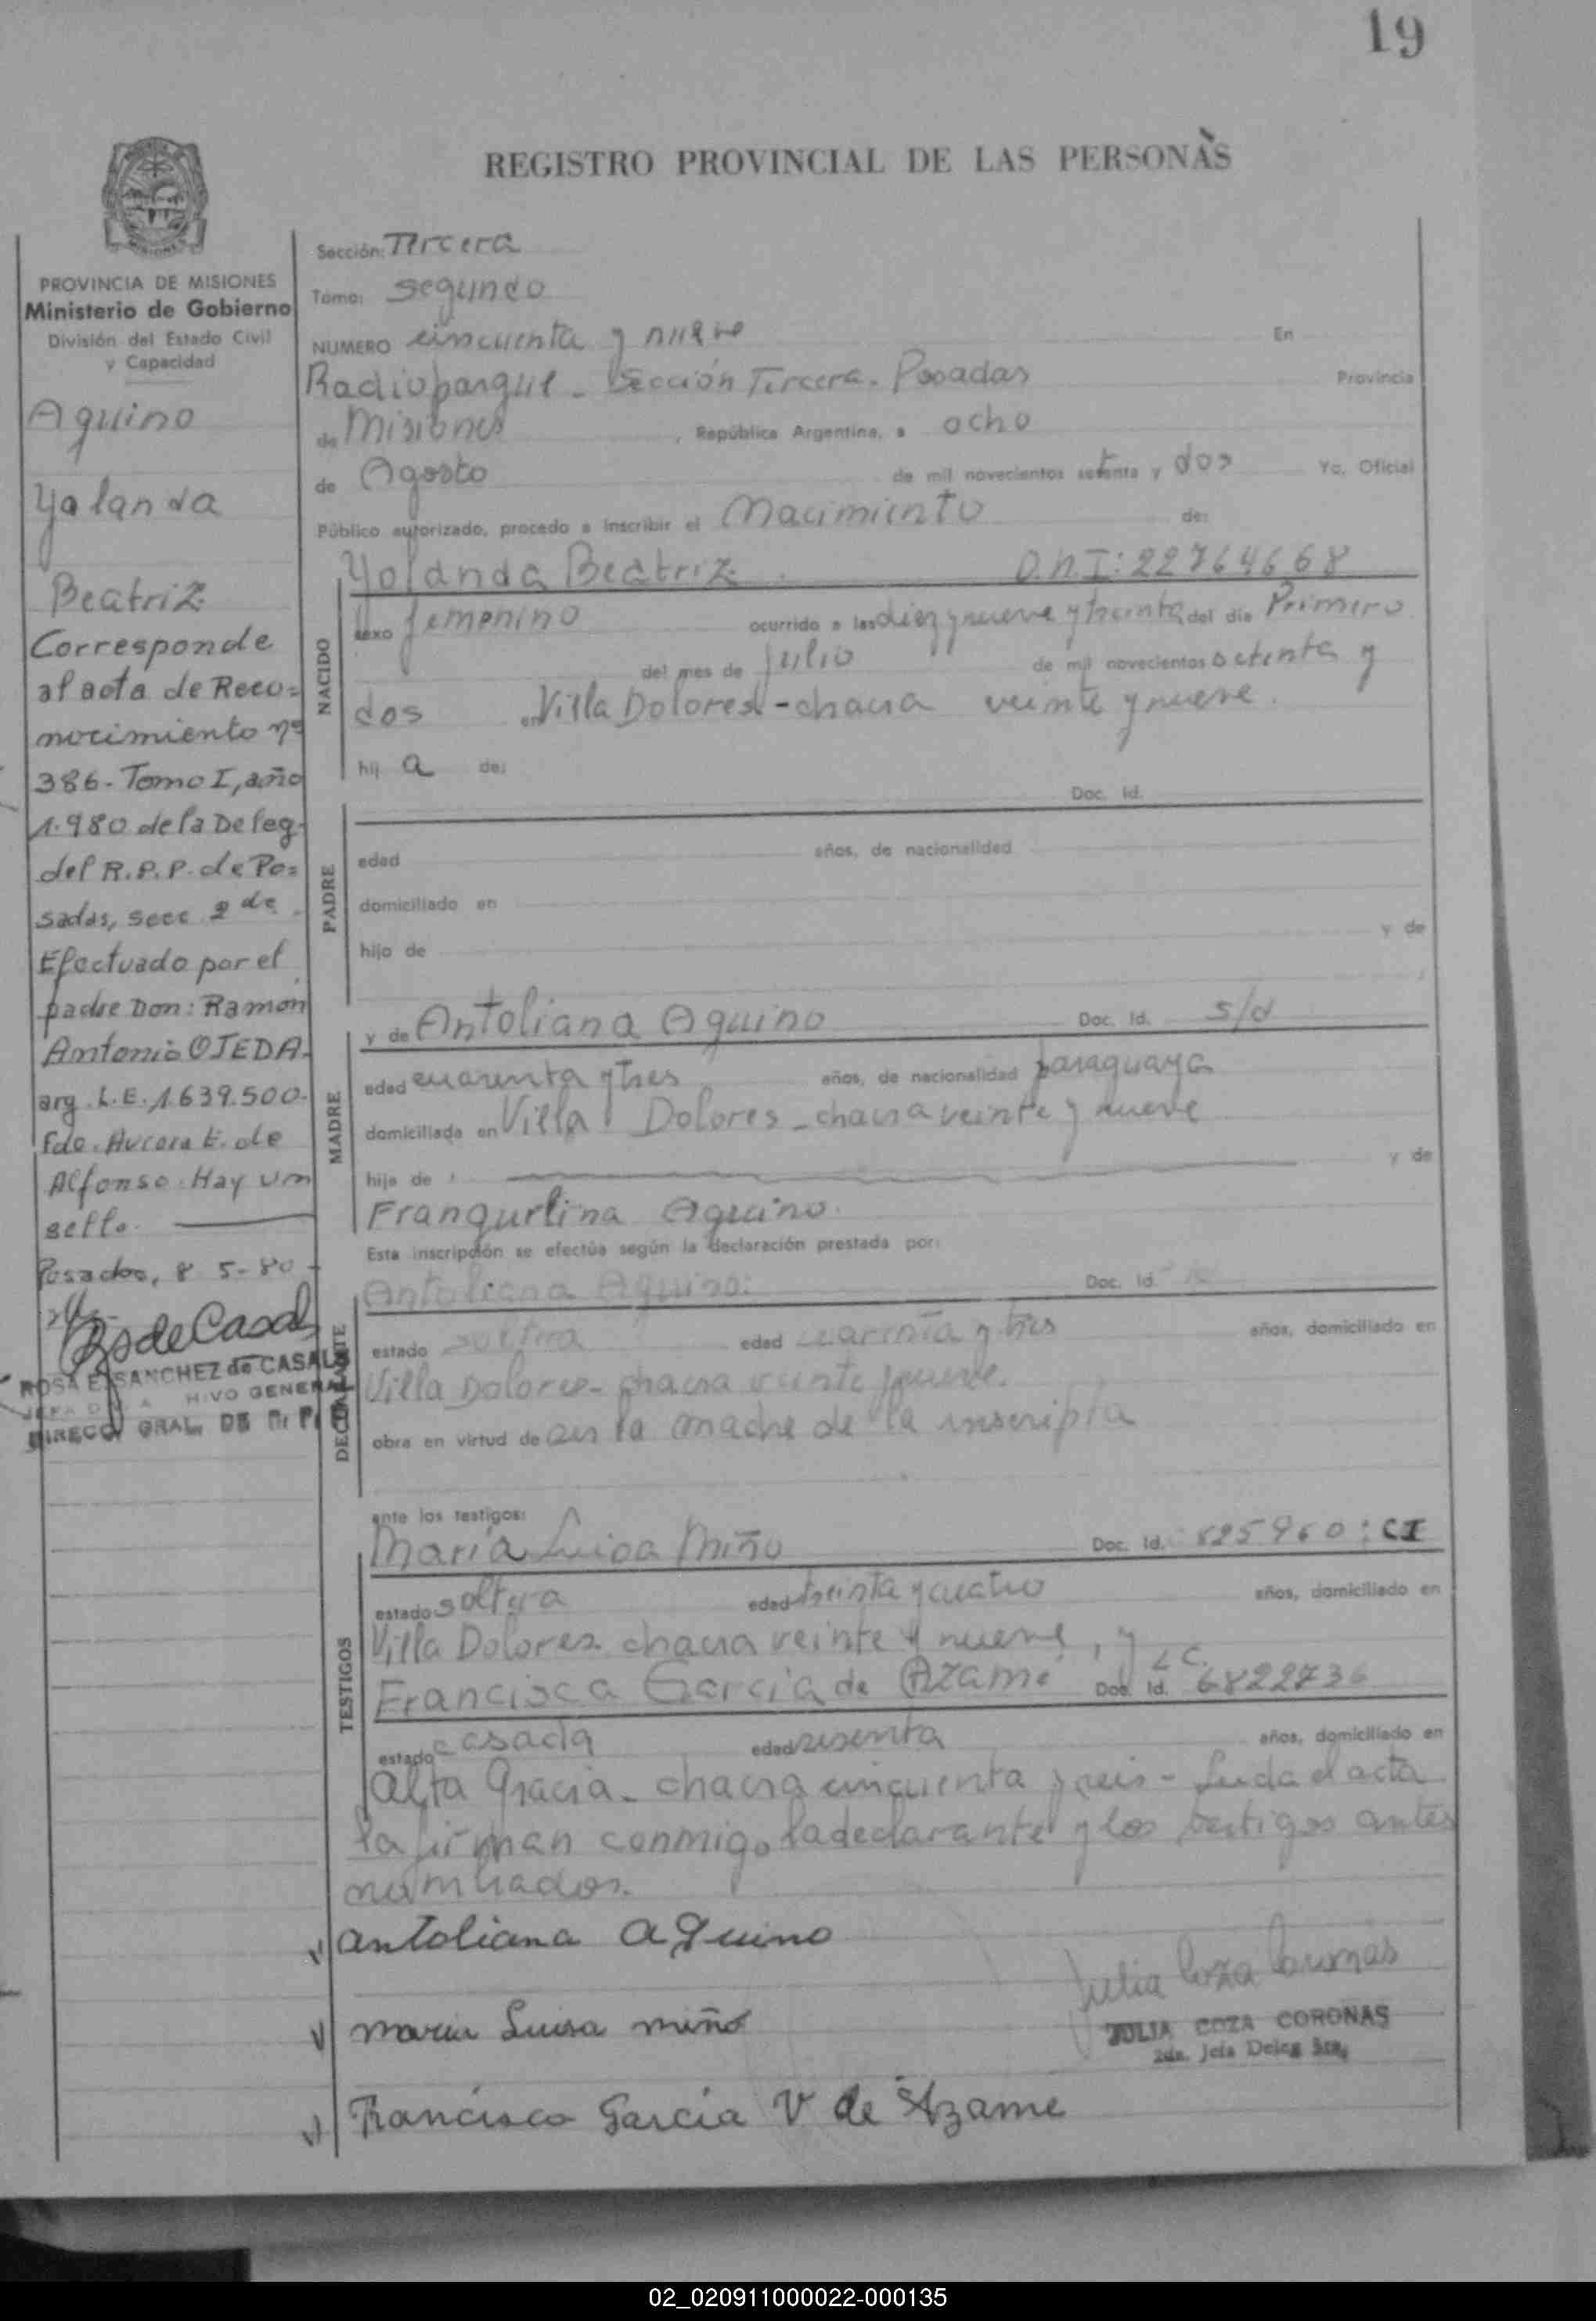 19
REGISTRO PROVINCIAL DE LAS PERSONAS
PROVINCIA DE MISIONES
Ministerio de Gobierno
División del Estado Civil
y Capacidad
Aquino
Yolanda
Beatriz
Corresponde
al acta de Reco=
nocimiento nº
386- Tomo I, año
1.980 de la Deleg.
del R.P.P. de Po=
sadas, secc 2 da
Efectuado por el
padre Don: Ramón
Antonio OJEDA-
arg. L.E. 1.639.500-
Fdo. Aurora E. de
Alfonso. Hay un
sello.
Posadas, 8 5-80
RsdeCasals
ROSA E. SANCHEZ de CASALS
HIVO GENERAL
DIRECC. GRAL. DE R. P.
Sección: Tercera
Tomo: segundo
NUMERO cincuenta y nueve En
Radioparque - Sección Tercera. Posadas Provincia
de Misiones, República Argentina, a ocho
de Agosto de mil novecientos setenta y dos Yo, Oficial
Público autorizado, procedo a inscribir el Nacimiento de:
Yolanda Beatriz D.N.I: 22764668
NACIDO
sexo femenino ocurrido a las diez y nueve y treinta del día Primero
del mes de Julio de mil novecientos setenta y
dos en Villa Dolores - chacra veinte y nueve.
hij a de:
Doc. Id.
PADRE
edad años, de nacionalidad
domiciliado en
hijo de y de
y de Antoliana Aquino Doc. Id. s/d
MADRE
edad cuarenta y tres años, de nacionalidad paraguaya
domiciliada en Villa Dolores - chacra veinte y nueve
hija de y de
Frangurlina Aquino.
Esta inscripción se efectúa según la declaración prestada por:
Antoliana Aquino: Doc. Id.
DECLARANTE
estado soltera edad cuarenta y tres años, domiciliado en
Villa Dolores - chacra veinte y nueve.
obra en virtud de ser la madre de la inscripta
ante los testigos:
María Luisa Miño Doc. Id. 525960: CI
TESTIGOS
estado soltera edad treinta y cuatro años, domiciliado en
Villa Dolores chacra veinte y nueve, y
Francisca García de Azame Doc. Id. L C. 6822736
estado casada edad sesenta años, domiciliado en
Alta Gracia - chacra cincuenta y seis - Leida el acta
la firman conmigo la declarante y los testigos antes
nombrados.
Antoliana Aquino
Julia Coza Coronas
maria Luisa miño
JULIA COZA CORONAS
2da. Jefa Deleg 3ra.
Francisca Garcia V de Azame
02_020911000022-000135